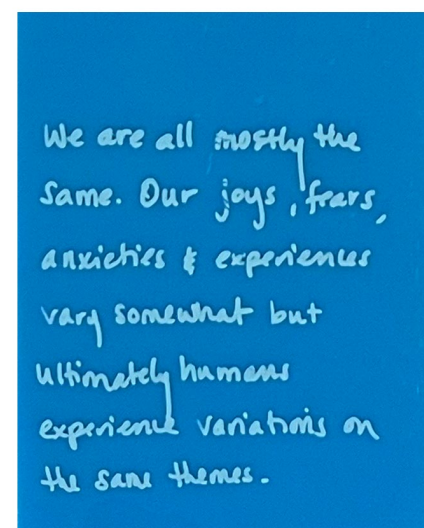 We are all mostly the
same. Our joys, fears,
anxieties & experiences
vary somewhat but
ultimately humans
experience variations on
the same themes.